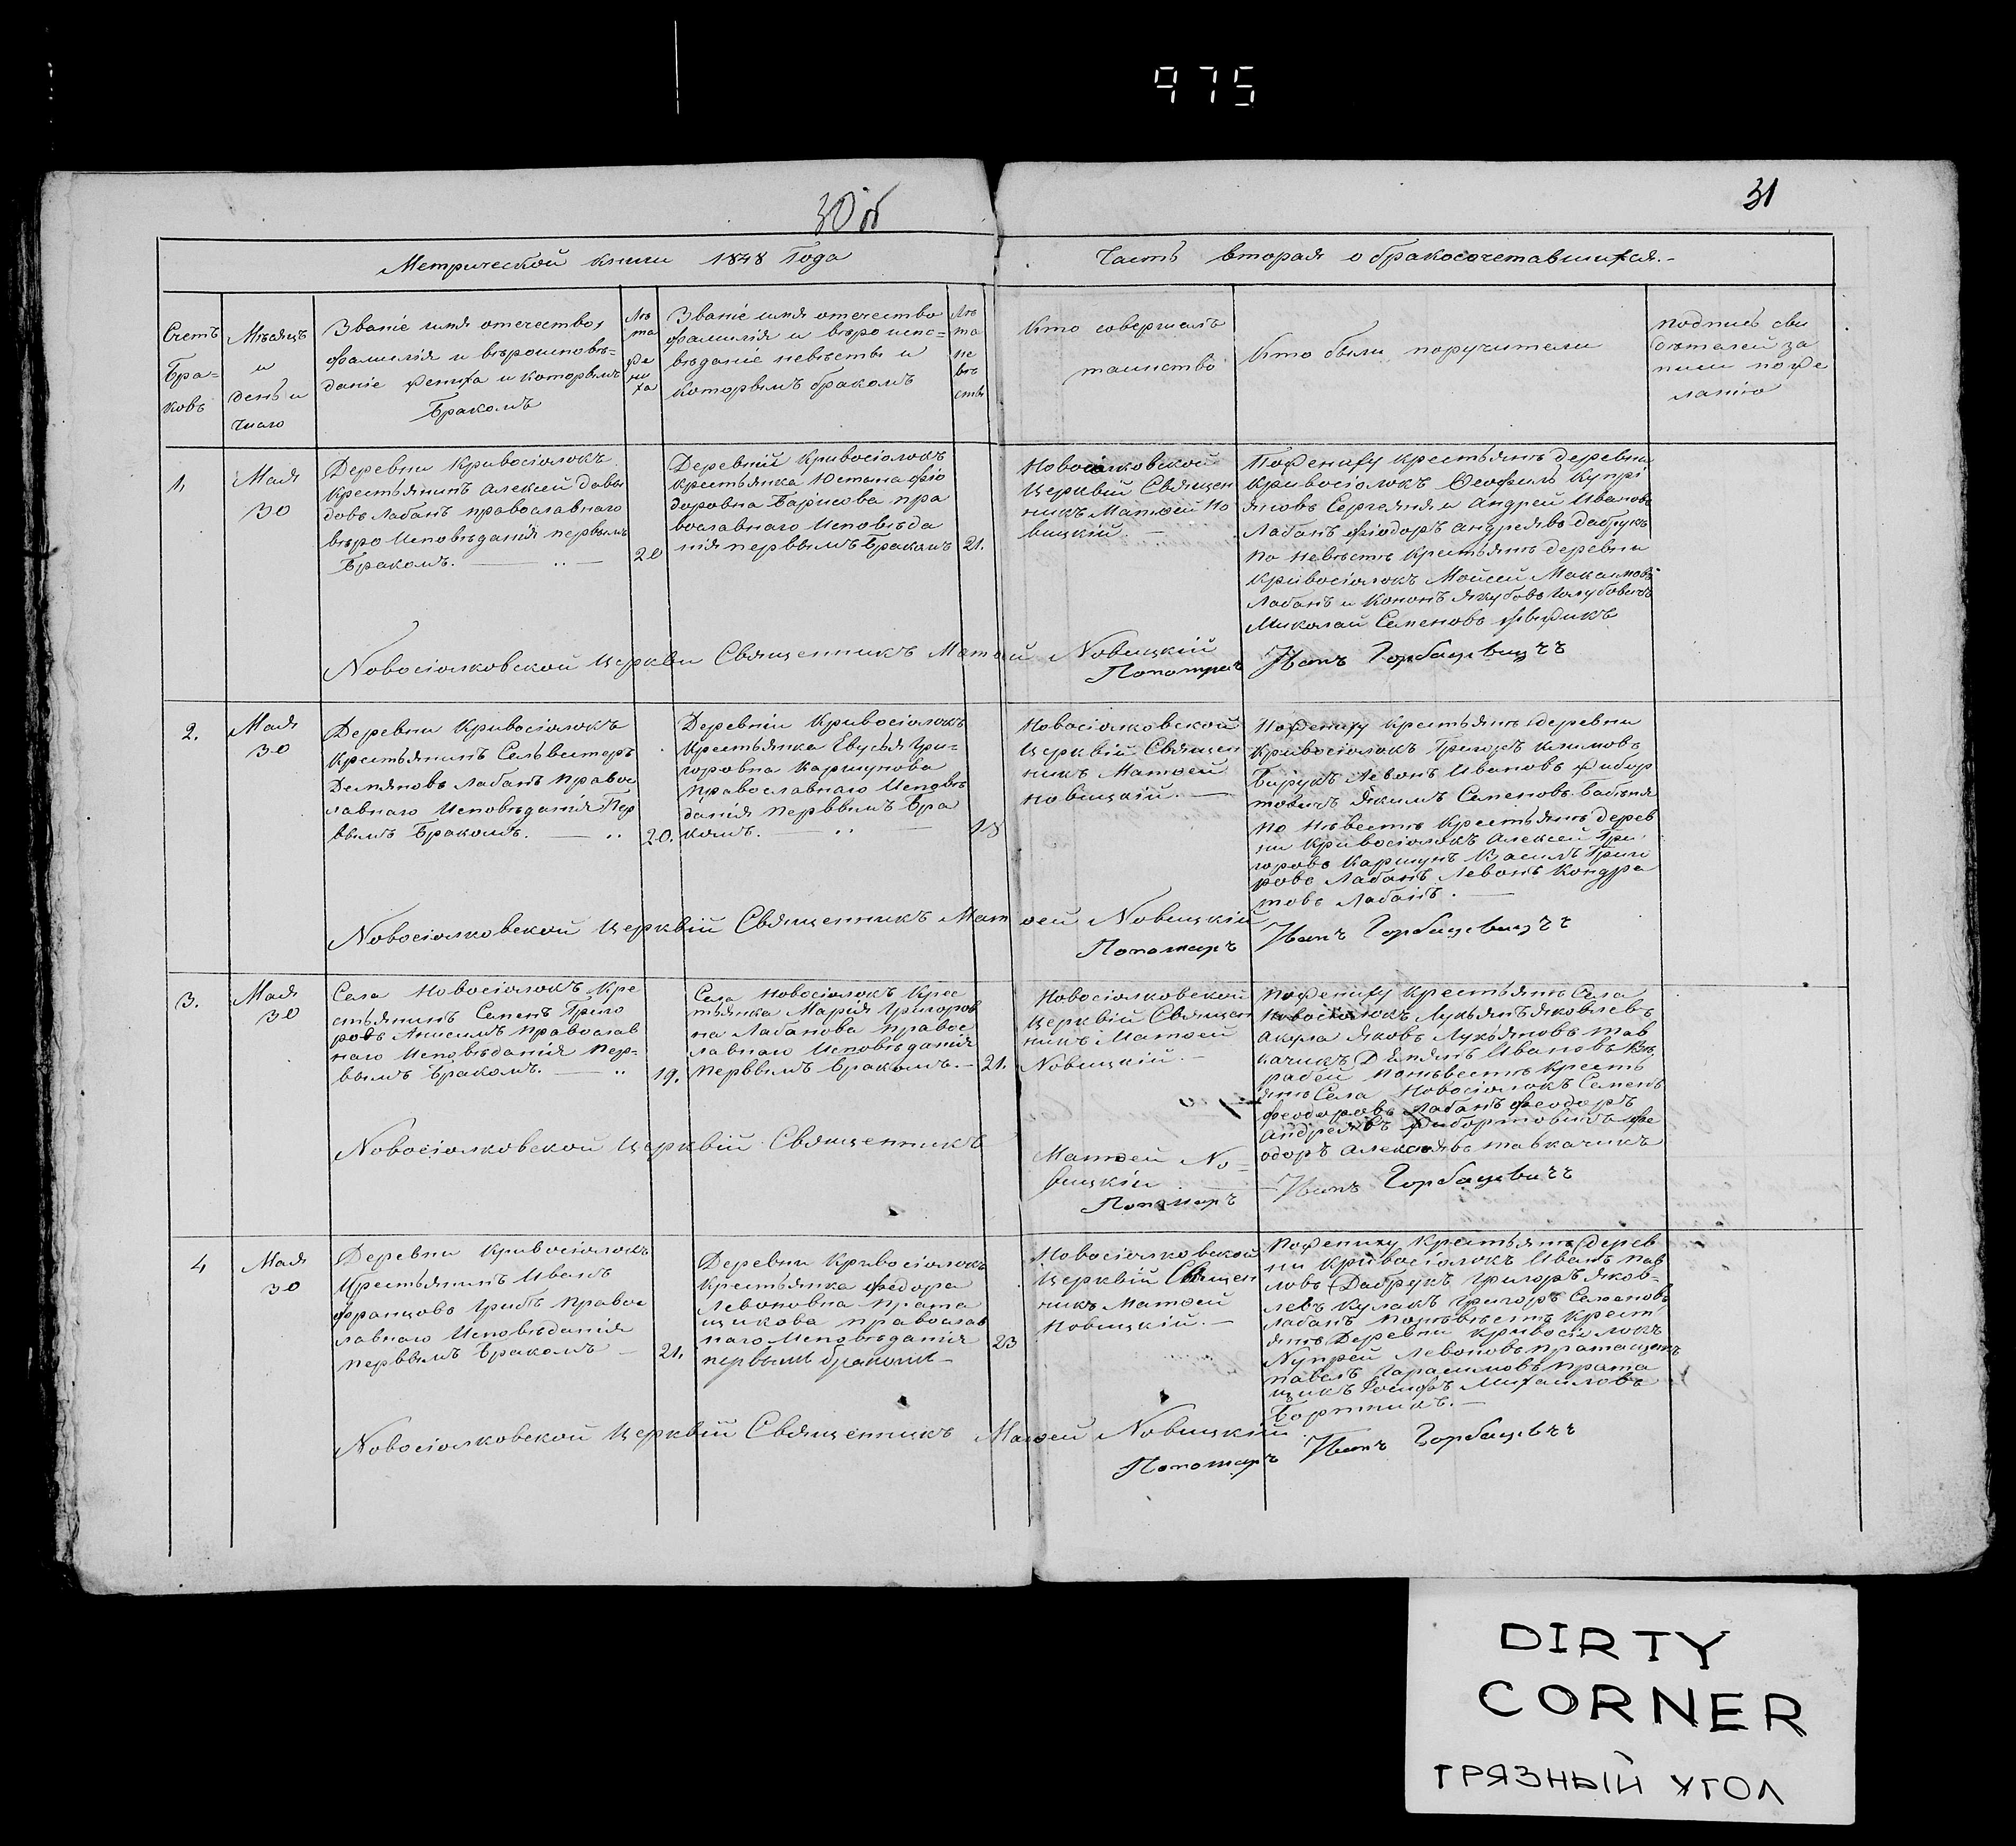 975
30 об
31
Метрической книги 1848 Года
Часть вторая о бракосочетавшихся.-
Счетъ
Бра=
ковъ
Мѣсяцъ
и
день и
число
Званіе имя отечество,
фамилія и вѣроисповѣ=
даніе жениха и которымъ
Бракомъ
Лѣ
та
же
ни
ха
Званіе имя отечество
фамилія и вѣроиспо=
вѣданіе невѣсты и
которымъ бракомъ
Лѣ
та
не
вѣ
сты
Кто совершалъ
таинство
Кто были поручители
подпись сви
дѣтелей за
писи по же
ланію
1,
Мая
30
Деревни Кривосіолокъ
Крестьянинъ Алексей Давы
довъ Лабанъ православнаго
вѣро Исповѣданія первымъ
Бракомъ.
20
Деревній Кривосіолокъ
крестьянка Юстина Фіо
доровна Барисова пра
вославнаго Исповѣда
нія перввымъ Бракомъ
21.
Новосіолковской
Церквій Священ
никъ Матѳей Но
вицкій. —
По Жениху крестьянъ деревни
Кривосіолокъ Ѳеофилъ Купрі
яновъ Сергеяня и Андрей Ивановъ
Лабанъ Фіодоръ Андреявъ Дабрукъ
По Невѣсте Крестьянъ деревни
Кривосіолокъ Моисей Макаимовъ
Лабанъ и Кононъ Якубовъ Голубовичъ
Миколай Семеновъ
Novосіолковской Церкви Священникъ Матѳей Novицкій
Пономарь Иванъ Горбацевичъ
2.
Мая
30
Деревни Кривосіолокъ
Крестьянинъ Сельвестеръ
Демяновъ Лабанъ Правос
лавнаго Исповѣданія Пер
ввымъ Бракомъ. — ..
20.
Деревніи Кривосіолокъ
Крестьянка Евусья Гри=
горовна Каршунова
Православнаго Исповѣ
данія перввымъ Бра
комъ.
18
Новосіолковской
Церквій Священ
никъ Матѳей
Новицкій. —
По жениху крестьянъ деревни
Кривосіолокъ Григорь Климовъ
Бірукъ Левонъ Ивановъ Жибор
товичъ Якимъ Семеновъ
По Нѣвесте Крестьянъ дерев
ни Кривосіолокъ Алексей Гри
горовъ Каршунъ Касимъ Григо
ровъ Лабанъ Левонъ Кондра
товъ Лабанъ. —
Novосіолковской Церквій Священникъ Матѳей Novицкій
Пономарь Иванъ Горбацевичъ
3.
Мая
30
Села Новосіолокъ Кре
стьянинъ Семенъ Григо
ровъ Анисимъ Православ
наго Исповѣданія Пер-
вымъ Бракомъ. — ..
19.
Села Новосіолокъ Крес
тьянка Марія Григоров
на Лабанова Правос
лавнаго Исповѣданія
перввымъ Бракомъ. -
21.
Новосіолковской
Церквій Священ
никъ Матѳей
Novицкій. —
По Жениху Крестьянъ Села
Новосіолокъ Лукьянъ Яковлевъ
Акула Яковъ Лукьяновъ Тав
качикъ Демянъ Ивановъ
По невѣсте Кресть
янъ Села Новосіолокъ Семенъ
Феодоровъ Лабанъ Феодоръ
Андреявъ Жибортовичъ Фе
одоръ Алексіявъ Тавкачикъ
Novосіолковской Церквій Священникъ
Матѳей No=
вицкій
Пономарь Иванъ Горбацевичъ
4
Мая
30
Деревни Кривосіолокъ
Крестьянинъ Иванъ
Францовъ Грибъ Правос
лавнаго Исповѣданія
перввымъ Бракомъ —
21.
Деревни Кривосіолокъ
Крестьянка Федора
Левоновна Прата
щикова православ
наго Исповѣданія
первымъ бракомъ —
23
Новосіолковской
Церквій Священ
никъ Матѳей
Новицкій. —
По жениху Крестьянъ Дерев
ни Кривосіолокъ Иванъ Пав
ловъ Дабрукъ Григоръ Яков-
левъ Кулакъ Григоръ Семеновъ
Лабанъ По невѣсте Крест
янъ Деревни Кривосіолокъ
Купрей Левоновъ Пратащикъ
Павелъ Гарасимовъ Прата
щикъ Іосифъ Михайловъ
Бортникъ. —
Novосіолковской Церквій Священникъ Матѳей Novицкій
Пономарь Иванъ Горбацевичъ
DIRTY
CORNER
ГРЯЗНЫЙ УГОЛ